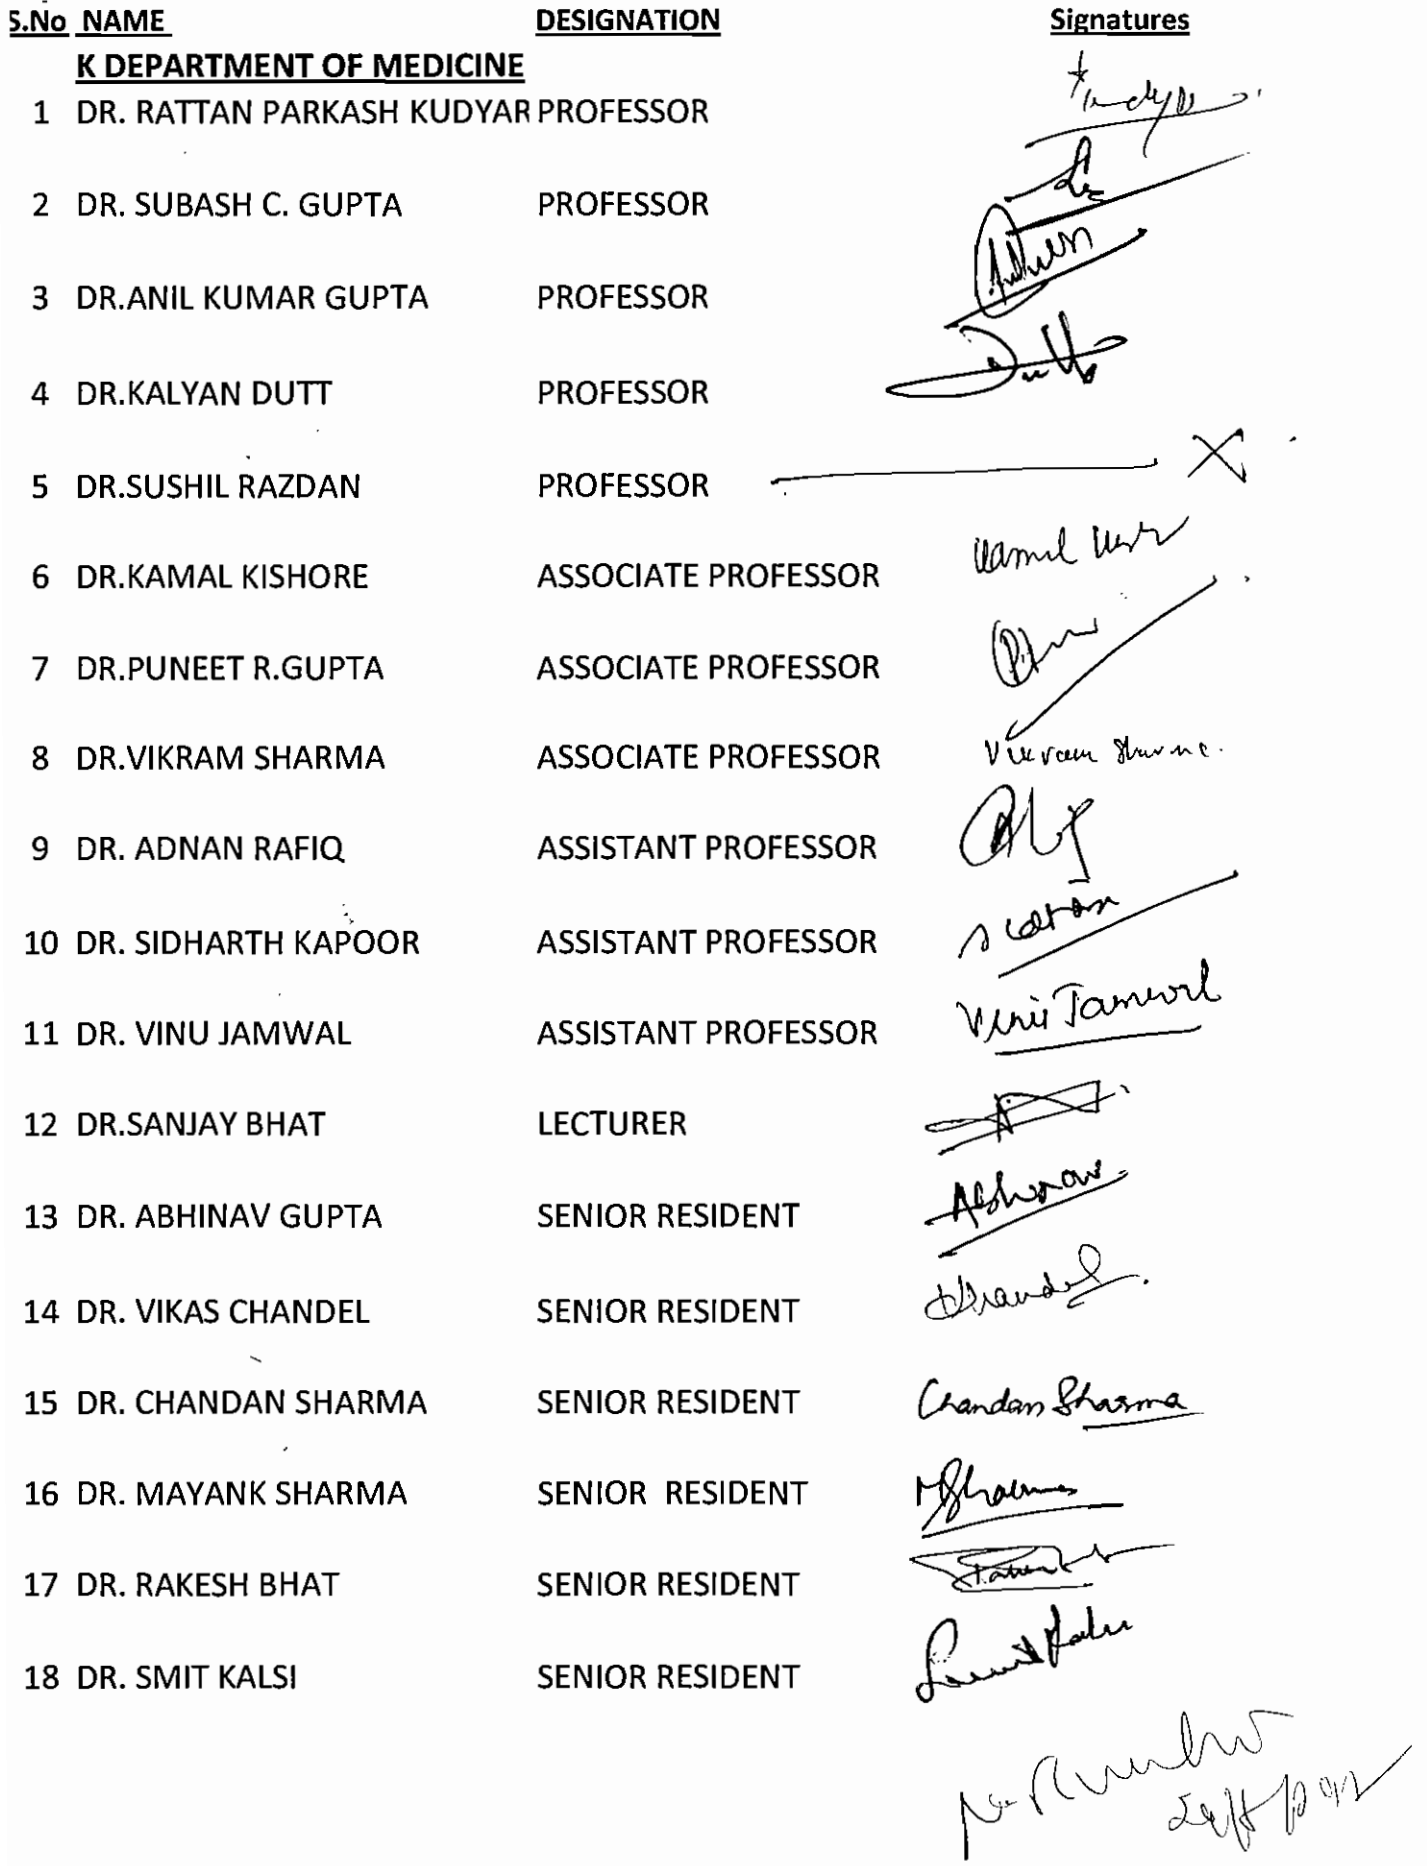 S.No NAME DESIGNATION Signatures
K DEPARTMENT OF MEDICINE
1 DR. RATTAN PARKASH KUDYAR PROFESSOR
2 DR. SUBASH C. GUPTA PROFESSOR
3 DR.ANIL KUMAR GUPTA PROFESSOR
4 DR.KALYAN DUTT PROFESSOR
5 DR.SUSHIL RAZDAN PROFESSOR X
6 DR.KAMAL KISHORE ASSOCIATE PROFESSOR
7 DR.PUNEET R.GUPTA ASSOCIATE PROFESSOR
8 DR.VIKRAM SHARMA ASSOCIATE PROFESSOR Vikram Sharma.
9 DR. ADNAN RAFIQ ASSISTANT PROFESSOR
10 DR. SIDHARTH KAPOOR ASSISTANT PROFESSOR
11 DR. VINU JAMWAL ASSISTANT PROFESSOR Vinu Jamwal
12 DR.SANJAY BHAT LECTURER
13 DR. ABHINAV GUPTA SENIOR RESIDENT Abhinav
14 DR. VIKAS CHANDEL SENIOR RESIDENT
15 DR. CHANDAN SHARMA SENIOR RESIDENT Chandan Sharma
16 DR. MAYANK SHARMA SENIOR RESIDENT MSharma
17 DR. RAKESH BHAT SENIOR RESIDENT
18 DR. SMIT KALSI SENIOR RESIDENT